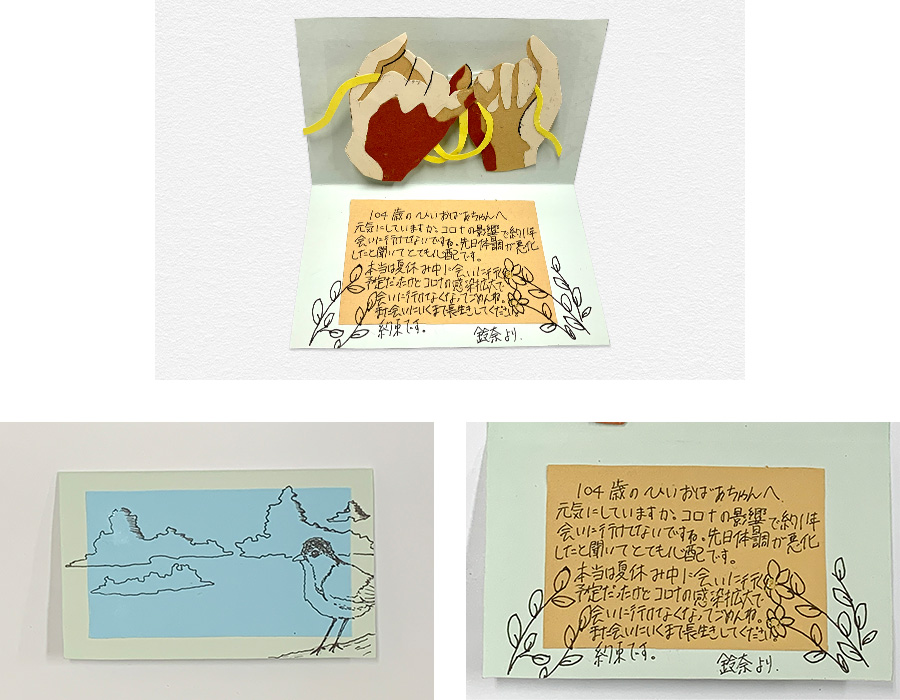 104歳のひいおばあちゃんへ
元気にしていますか。コロナの影響で約1年
会いに行けせないですね。先日体調が悪化
したと聞いてとても心配です。
本当は夏休み中に会いに行く
予定だったけどコロナの感染拡大で
会いに行けなくなってごめんね。
また会いにいくまで長生きしてください
約束です。
鈴奈より.
104歳のひいおばあちゃんへ
元気にしていますか。コロナの影響で約1年
会いに行けせないですね。先日体調が悪化
したと聞いてとても心配です。
本当は夏休み中に会いに行く
予定だったけどコロナの感染拡大で
会いに行けなくなってごめんね。
また会いにいくまで長生きしてください
約束です。
鈴奈より.